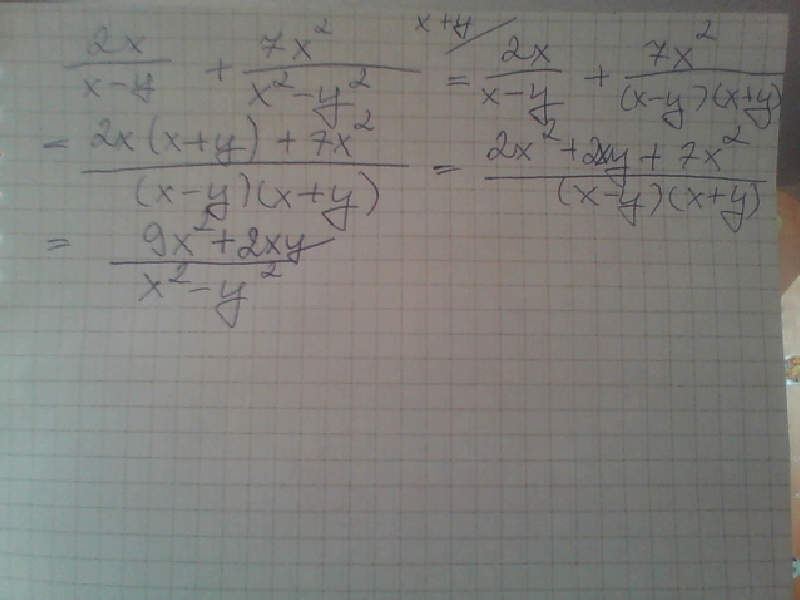 2x/(x-y) + 7x²/(x²-y²) = x+y/ 2x/(x-y) + 7x²/((x-y)(x+y))
= (2x(x+y) + 7x²)/((x-y)(x+y)) = (2x² + 2xy + 7x²)/((x-y)(x+y))
= (9x² + 2xy)/(x²-y²)